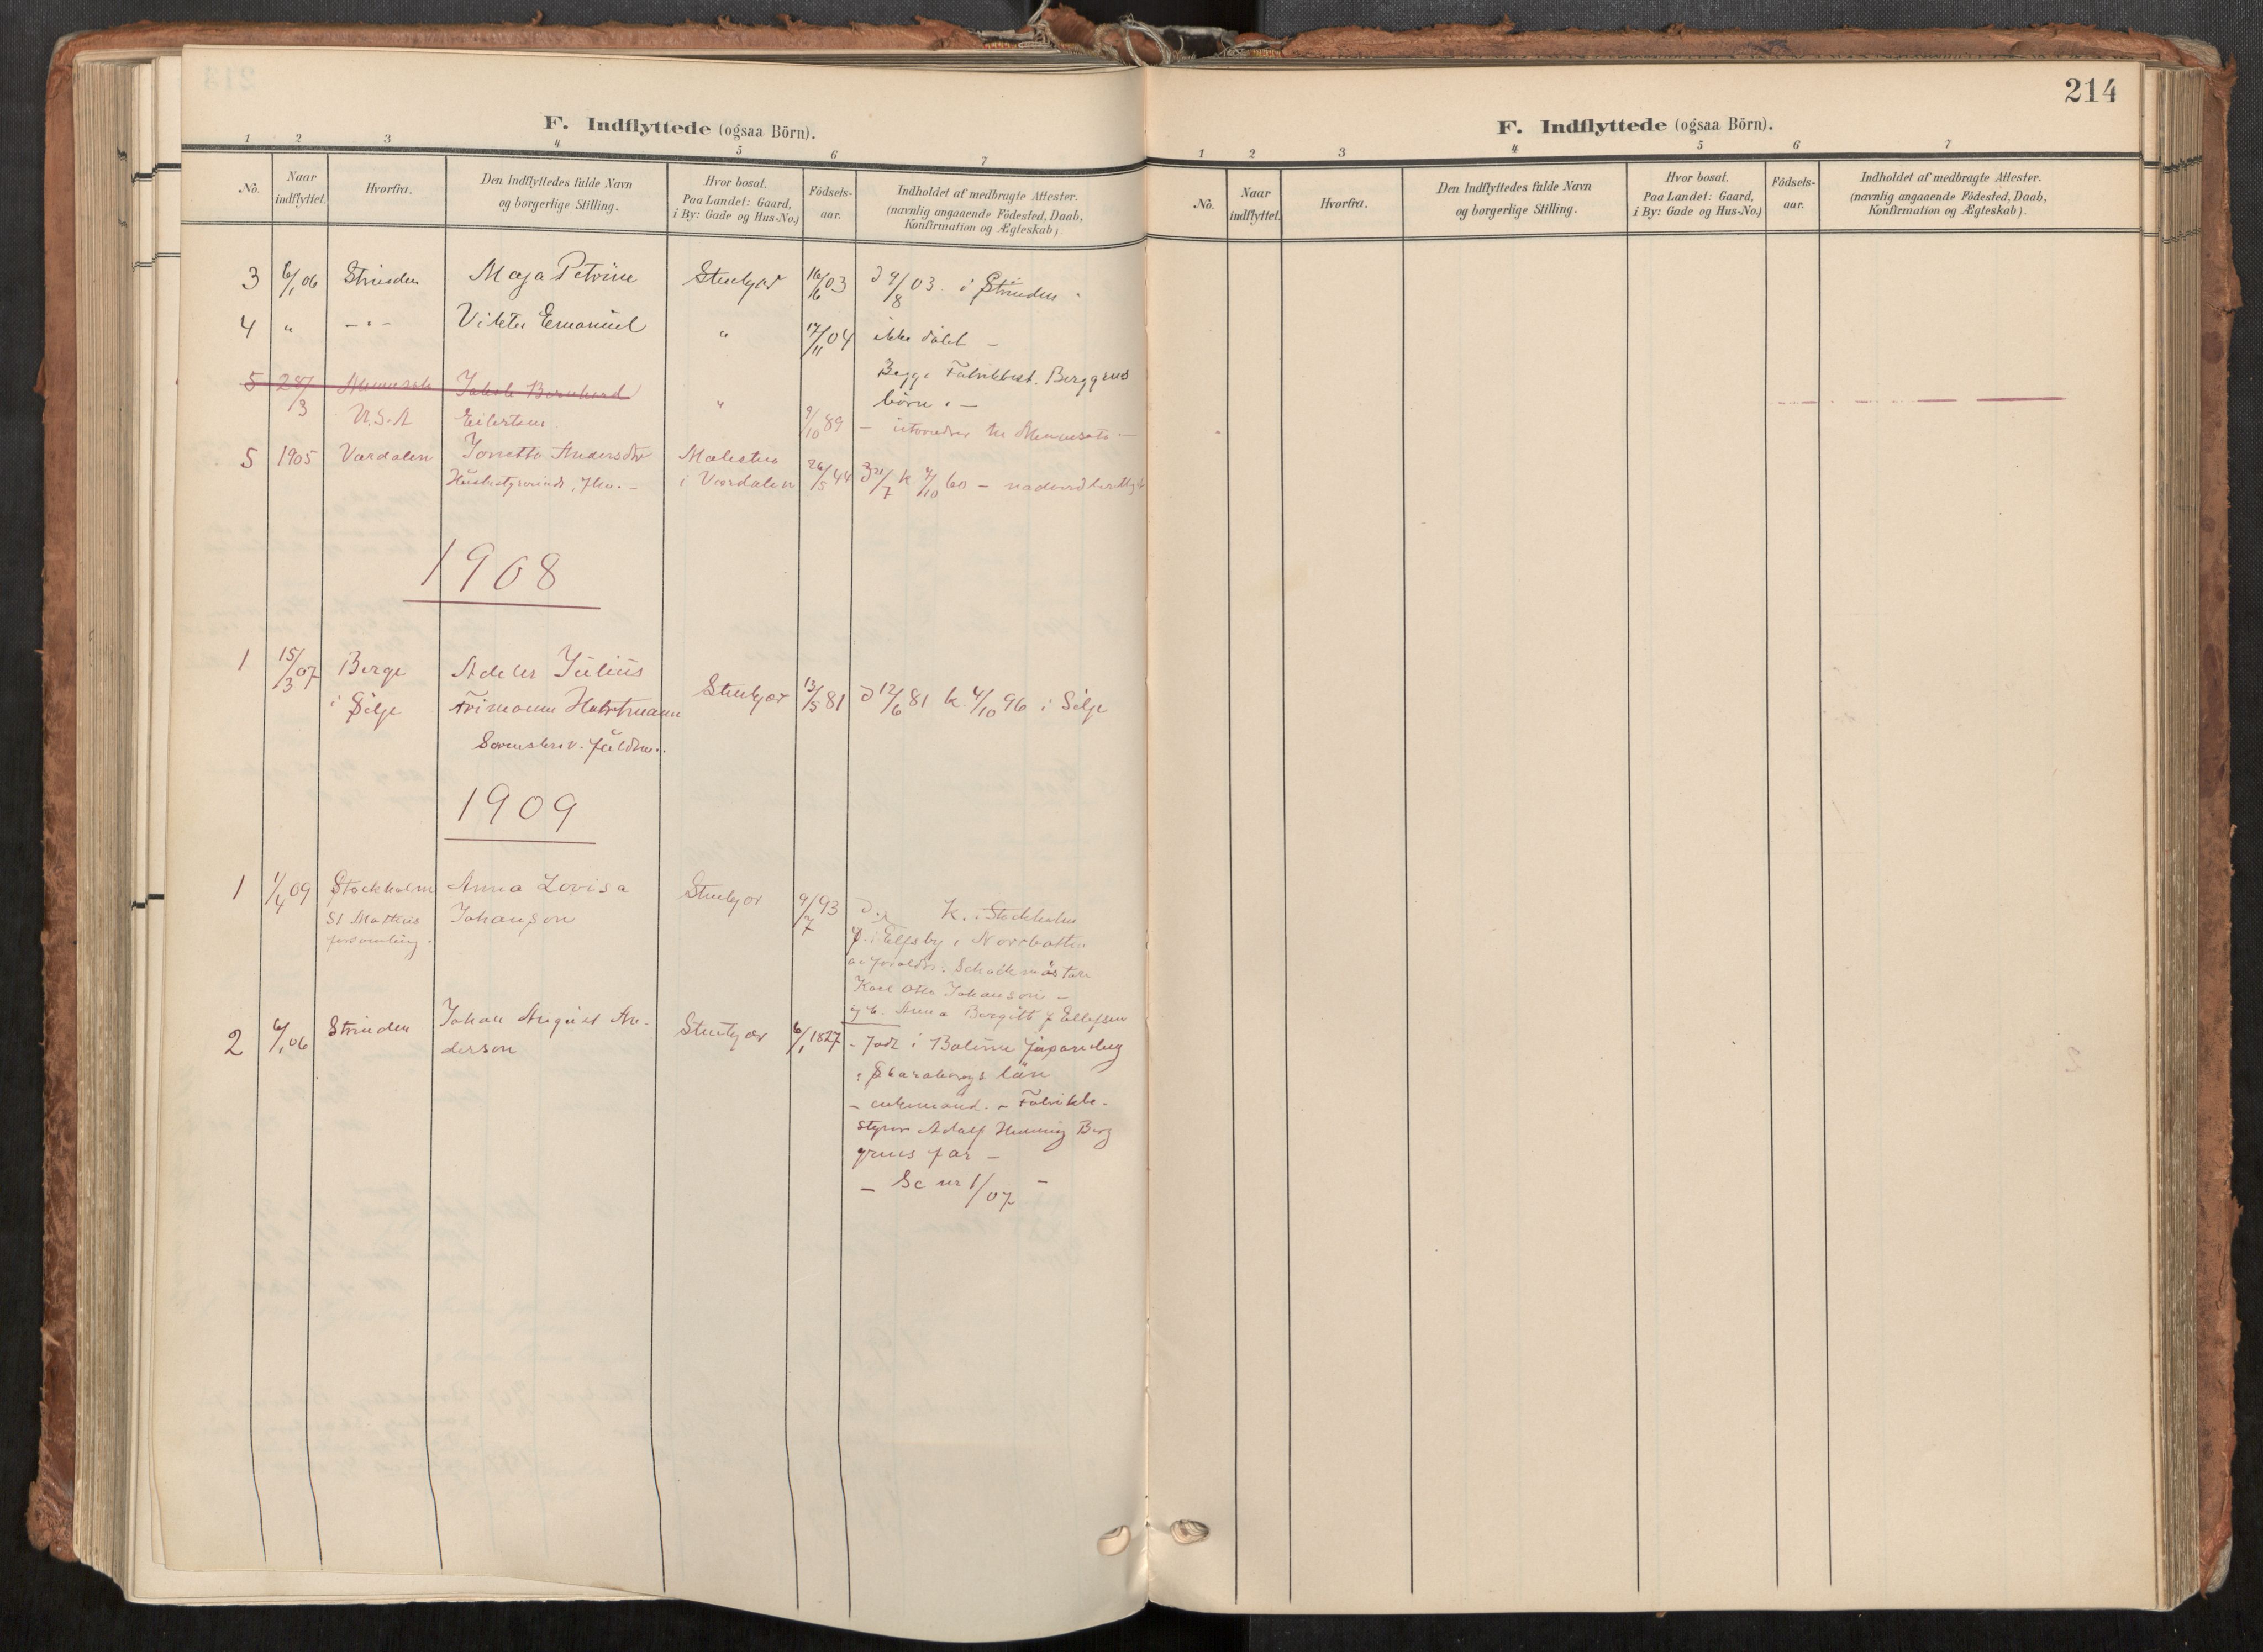 F. Indflyttede (ogsaa Börn).
1 2 3 4 5 6 7
No. Naar indflyttet. Hvorfra. Den Indflyttedes fulde Navn og borgerlige Stilling. Hvor bosat. Paa Landet: Gaard, i By: Gade og Hus-No.) Födsels-aar. Indholdet af medbragte Attester. (navnlig angaaende Födested, Daab, Konfirmation og Ægteskab).
3 6/1 06 Strinden Maja Petrine Stenkjær 16/6 03 D 9/8 03 i Strinden
4 " - " - Viktor Emanuel " 17/11 04 ikke döbt -
Begge Fabrikbest. Berggrens
börn. -
5 28/3 Jakob Bernhard
U.S.A Eilertsen. " 9/10 89 -
5 1905 Værdalen Jonetta Andersdtr
i Værdalen 26/5 44 7 K 7/10 60 -
1908
1 15/3 07 Berge Adeler Julius
i Selje Frimann Stenkjær 13/5 81 D 12/6 81 K. 4/10 96 i Selje
Sorenskriv. fuldm.
1909
1 1/4 09 Stockholm Anna Lovisa Stenkjær 9/7 93 D. K. i Stockholm
St Mattæus Johanson
forsamling. F. i Elfsby i Norrbotten
af foraldr.
Karl Otto Johanson -
og h. Anna Bergitt f Ellefsen
2 6/1 06 Strinden Johan August An- Stenkjær 6/1 1827 - född i
derson
i Skaraborgs län
- enkemand. - Fabrikbe-
styrer Adolf Henning Berg
grens far -
- Se nr 1/07 -
214
F. Indflyttede (ogsaa Börn).
1 2 3 4 5 6 7
No. Naar indflyttet. Hvorfra. Den Indflyttedes fulde Navn og borgerlige Stilling. Hvor bosat. Paa Landet: Gaard, i By: Gade og Hus-No.) Födsels-aar. Indholdet af medbragte Attester. (navnlig angaaende Födested, Daab, Konfirmation og Ægteskab).